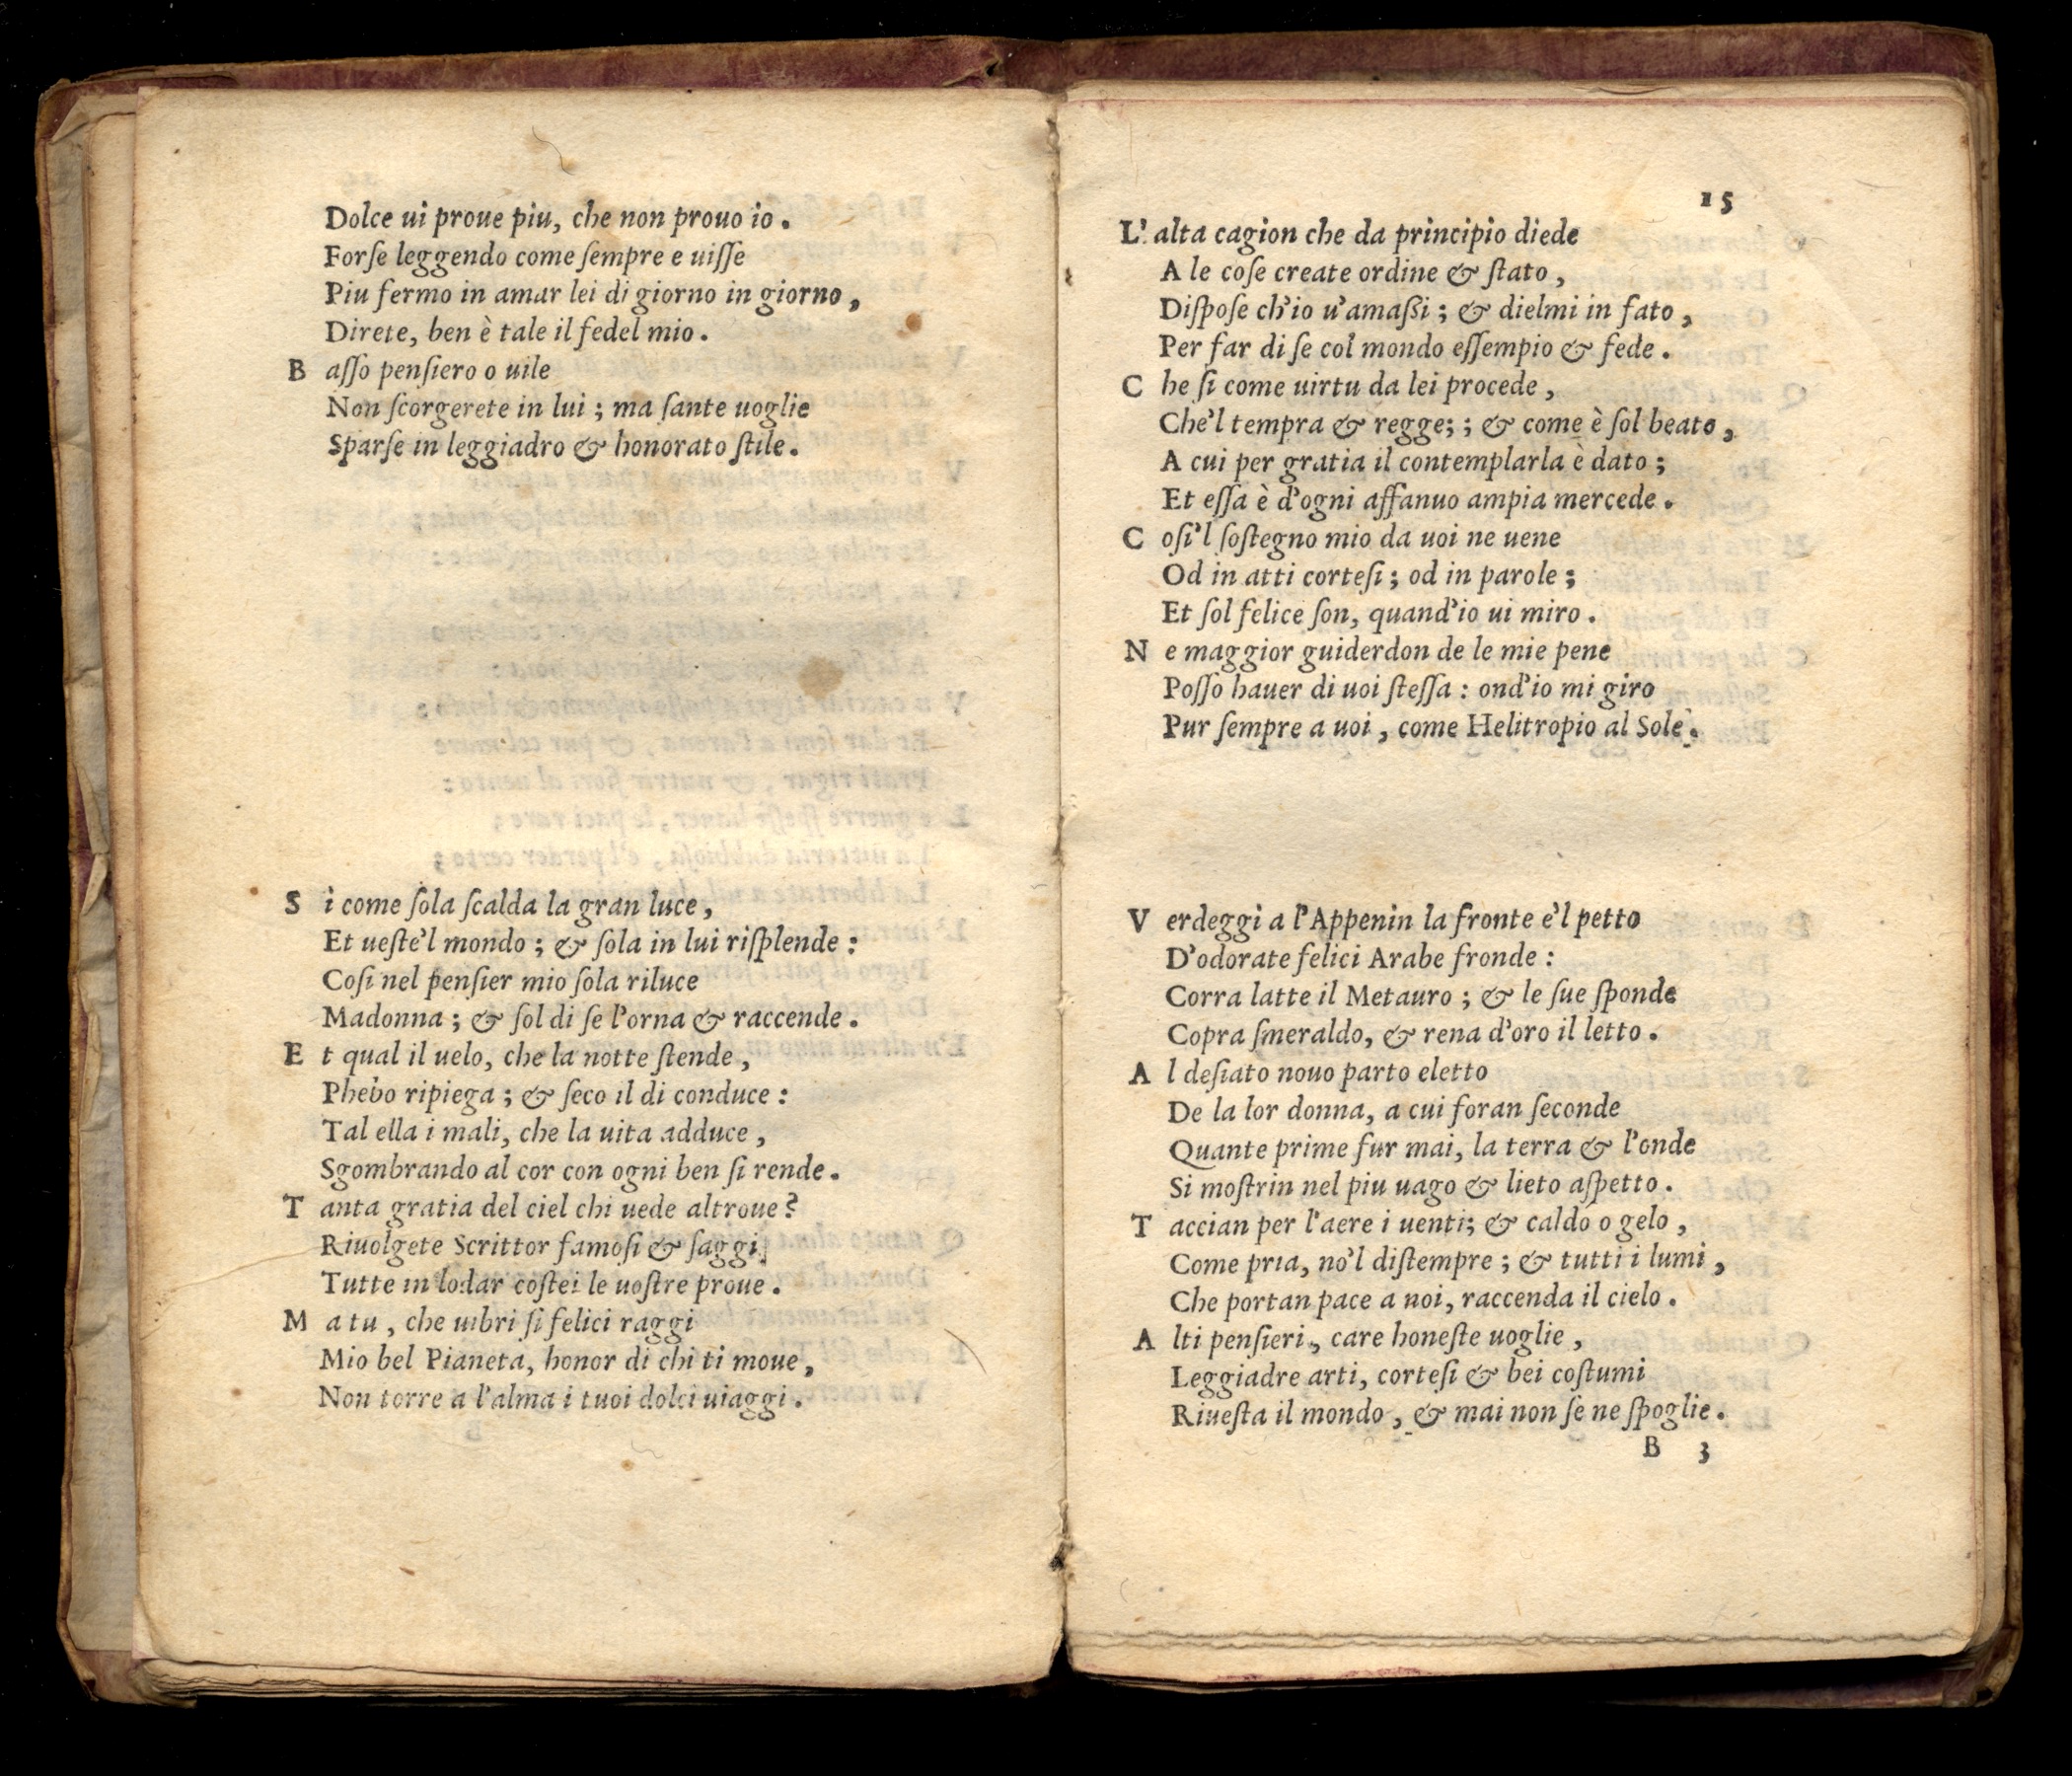 Dolce ui proue piu, che non prouo io.
Forſe leggendo come ſempre e uiſſe
Piu fermo in amar lei di giorno in giorno,
Direte, ben è tale il fedel mio.
B aſſo penſiero o uile
Non ſcorgerete in lui; ma ſante uoglie
Sparſe in leggiadro & honorato ſtile.
S ì come ſola ſcalda la gran luce,
Et ueſte'l mondo; & ſola in lui riſplende:
Coſi nel penſier mio ſola riluce
Madonna; & ſol di ſe l'orna & raccende.
E t qual il uelo, che la notte ſtende,
Phebo ripiega; & ſeco il di conduce:
Tal ella i mali, che la uita adduce,
Sgombrando al cor con ogni ben ſi rende.
T anta gratia del ciel chi uede altroue?
Riuolgete Scrittor famoſi & ſaggi
Tutte in lodar coſtei le uoſtre proue.
M a tu, che uibri ſi felici raggi
Mio bel Pianeta, honor di chi ti moue,
Non torre a l'alma i tuoi dolci uiaggi.
15
L' alta cagion che da principio diede
A le coſe create ordine & ſtato,
Diſpoſe ch'io u'amaßi; & dielmi in fato,
Per far di ſe col mondo eſſempio & fede.
C he ſi come uirtu da lei procede,
Che'l tempra & regge; ; & come è ſol beato,
A cui per gratia il contemplarla è dato;
Et eſſa è d'ogni affanuo ampia mercede.
C oſi'l ſoſtegno mio da uoi ne uene
Od in atti corteſi; od in parole;
Et ſol felice ſon, quand'io ui miro.
N e maggior guiderdon de le mie pene
Poſſo hauer di uoi ſteſſa: ond'io mi giro
Pur ſempre a uoi, come Helitropio al Sole.
V erdeggi a l'Appenin la fronte e'l petto
D'odorate felici Arabe fronde:
Corra latte il Metauro; & le ſue ſponde
Copra ſmeraldo, & rena d'oro il letto.
A l deſiato nouo parto eletto
De la lor donna, a cui foran ſeconde
Quante prime fur mai, la terra & l'onde
Si moſtrin nel piu uago & lieto aſpetto.
T accian per l'aere i uenti; & caldo o gelo,
Come pria, no'l diſtempre; & tutti i lumi,
Che portan pace a noi, raccenda il cielo.
A lti penſieri, care honeſte uoglie,
Leggiadre arti, corteſi & bei coſtumi
Riueſta il mondo, & mai non ſe ne ſpoglie.
B 3